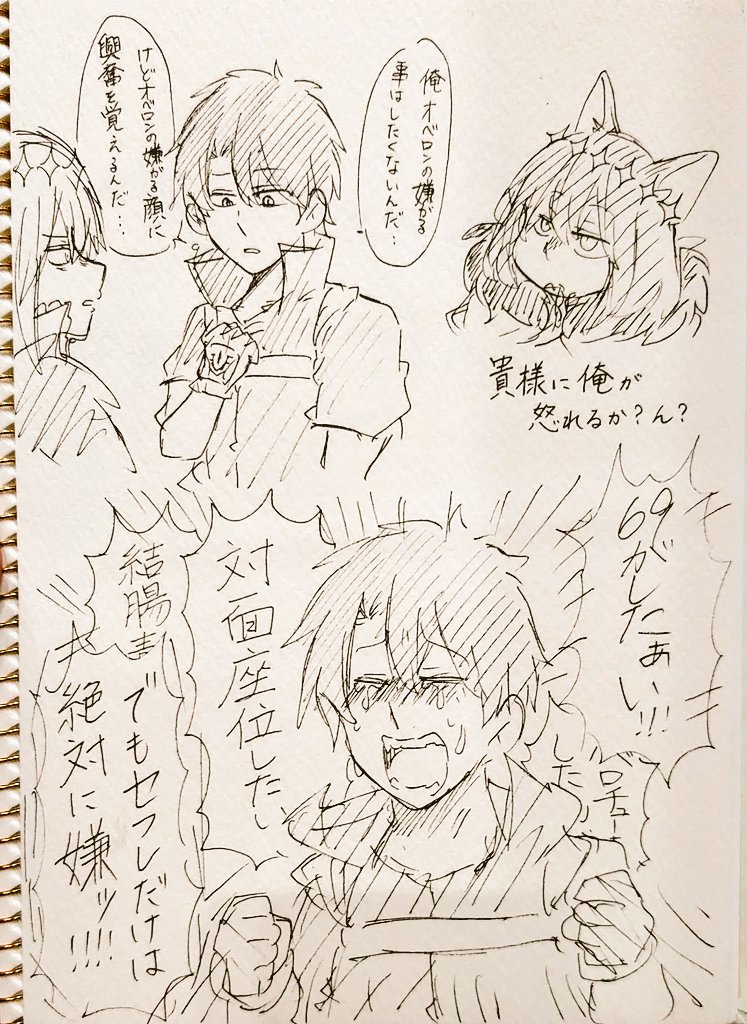 俺オベロンの嫌がる
事はしたくないんだ…
けどオベロンの嫌がる顔に
興奮を覚えるんだ…
貴様に俺が
怒れるか?ん?
69がしたぁい!!!
ベロチュー
した
対面座位したい
結腸
でもセフレだけは
絶対に嫌ッ!!!!